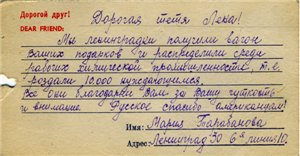 Дорогой друг!
DEAR FRIEND:
Дорогая тетя Лена!
Мы ленинградки получили вагон
Ваших подарков и распределили среди
рабочих Химической промышленности т.е.
роздали 10.000 нуждающимся.
Все они благодарят Вам за Вашу чуткость
и внимание. Русское спасибо американцам!
Имя: Мария Тарабанова
Адрес:
Ленинград 30 6ая линия 10.